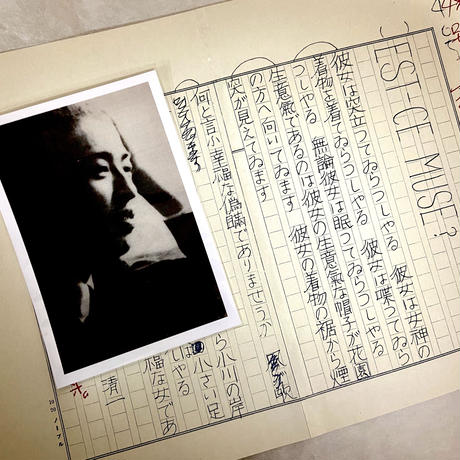 EST-CE MUSE?
彼女は突立つてゐらつしやる　彼女は女神の
着物を着てゐらつしやる　彼女は喋つてゐら
つしやる　無論彼女は眠つてゐらつしやる
生意氣であるのは彼女の生意氣な帽子が花園
の方へ向いてゐます　彼女の着物の裾から煙
突が見えてゐます
何と言ふ幸福な偽瞞でありませうか
ら小川の岸
は小さい足
しやる
福な女であ
清一
20 20 ノーブル